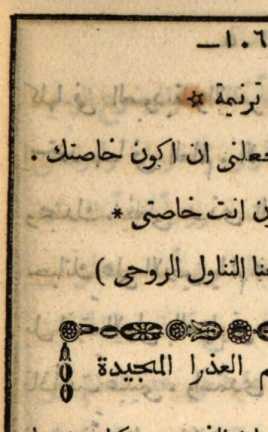 ١٠٦—
ترنيمة *
جعلنى ان اكون خاصتك .
ن انت خاصتى *
نا التناول الروحى )
م العذرا المجيدة